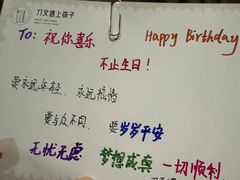 刀叉遇上筷子
To: 祝你喜乐 Happy Birthday
不止生日！
要永远年轻、永远热情
要与众不同、要岁岁平安
无忧无虑 梦想成真 一切顺利